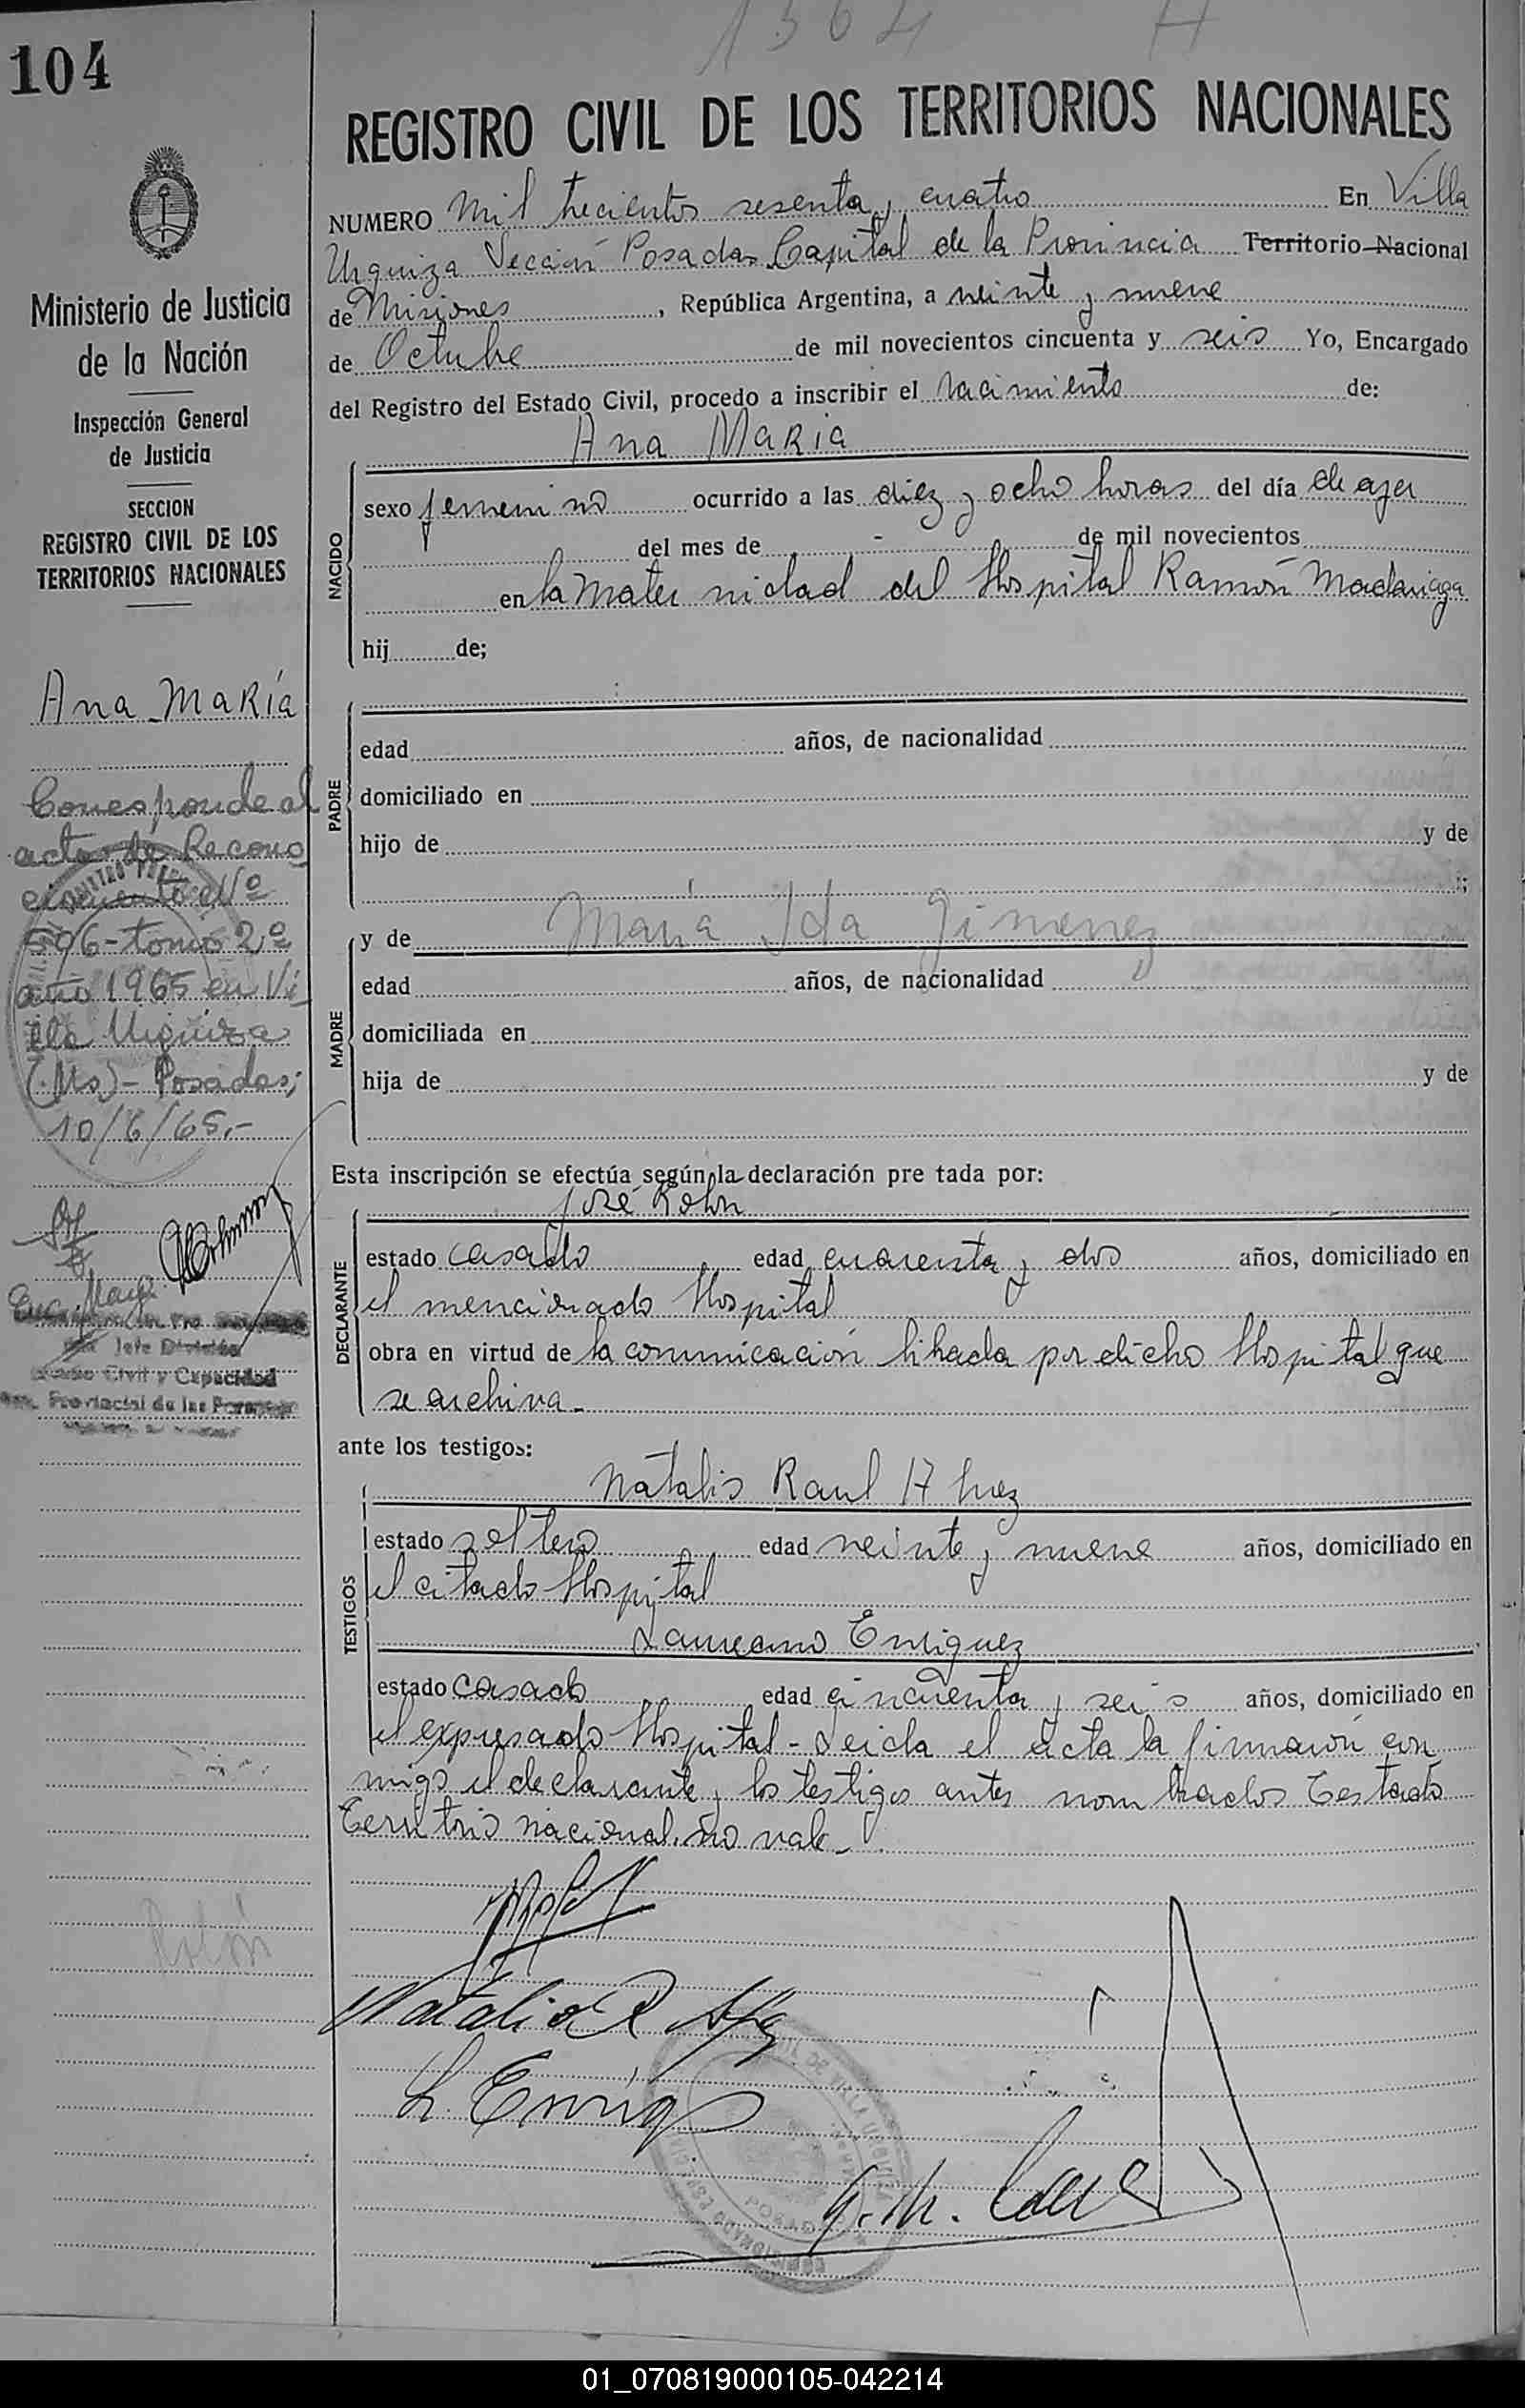 1364
104
REGISTRO CIVIL DE LOS TERRITORIOS NACIONALES
NUMERO Mil trecientos sesenta y cuatro En Villa
Urquiza Sección Posadas Capital de la Provincia Territorio Nacional
de Misiones, República Argentina, a veinte y nueve
de Octubre de mil novecientos cincuenta y seis Yo, Encargado
del Registro del Estado Civil, procedo a inscribir el nacimiento de:
Ana María
NACIDO
sexo femenino ocurrido a las diez y ocho horas del día de ayer
del mes de - de mil novecientos
en la Maternidad del Hospital Ramón Madariaga
hij de;
PADRE
edad años, de nacionalidad
domiciliado en
hijo de y de
;
MADRE
y de María Ida Gimenez
edad años, de nacionalidad
domiciliada en
hija de y de
Esta inscripción se efectúa según la declaración pre tada por:
José Rolón
DECLARANTE
estado casado edad cuarenta y dos años, domiciliado en
el mencionado Hospital
obra en virtud de la comunicación librada por dicho Hospital que
se archiva.-
ante los testigos:
Natalio Raul
TESTIGOS
estado soltero edad veinte y nueve años, domiciliado en
el citado Hospital
Laureano Enriquez
estado casado edad cincuenta y seis años, domiciliado en
el expresado Hospital - Leida el acta la firmaron con
migo el declarante y los testigos antes nombrados Testado
Territorio nacional. no vale -
Natalio R
L. Enriq
Ministerio de Justicia
de la Nación
Inspección General
de Justicia
SECCION
REGISTRO CIVIL DE LOS
TERRITORIOS NACIONALES
Ana María
Corresponde al
acta de Recono
cimiento Nº
596 - tomo 2º
año 1965 en Vi
lla Urquiza
(Ms) - Posadas;
10/6/65.-
Jefe División
Estado Civil y Capacidad
Provincial de las Personas
Rolón
01_070819000105-042214